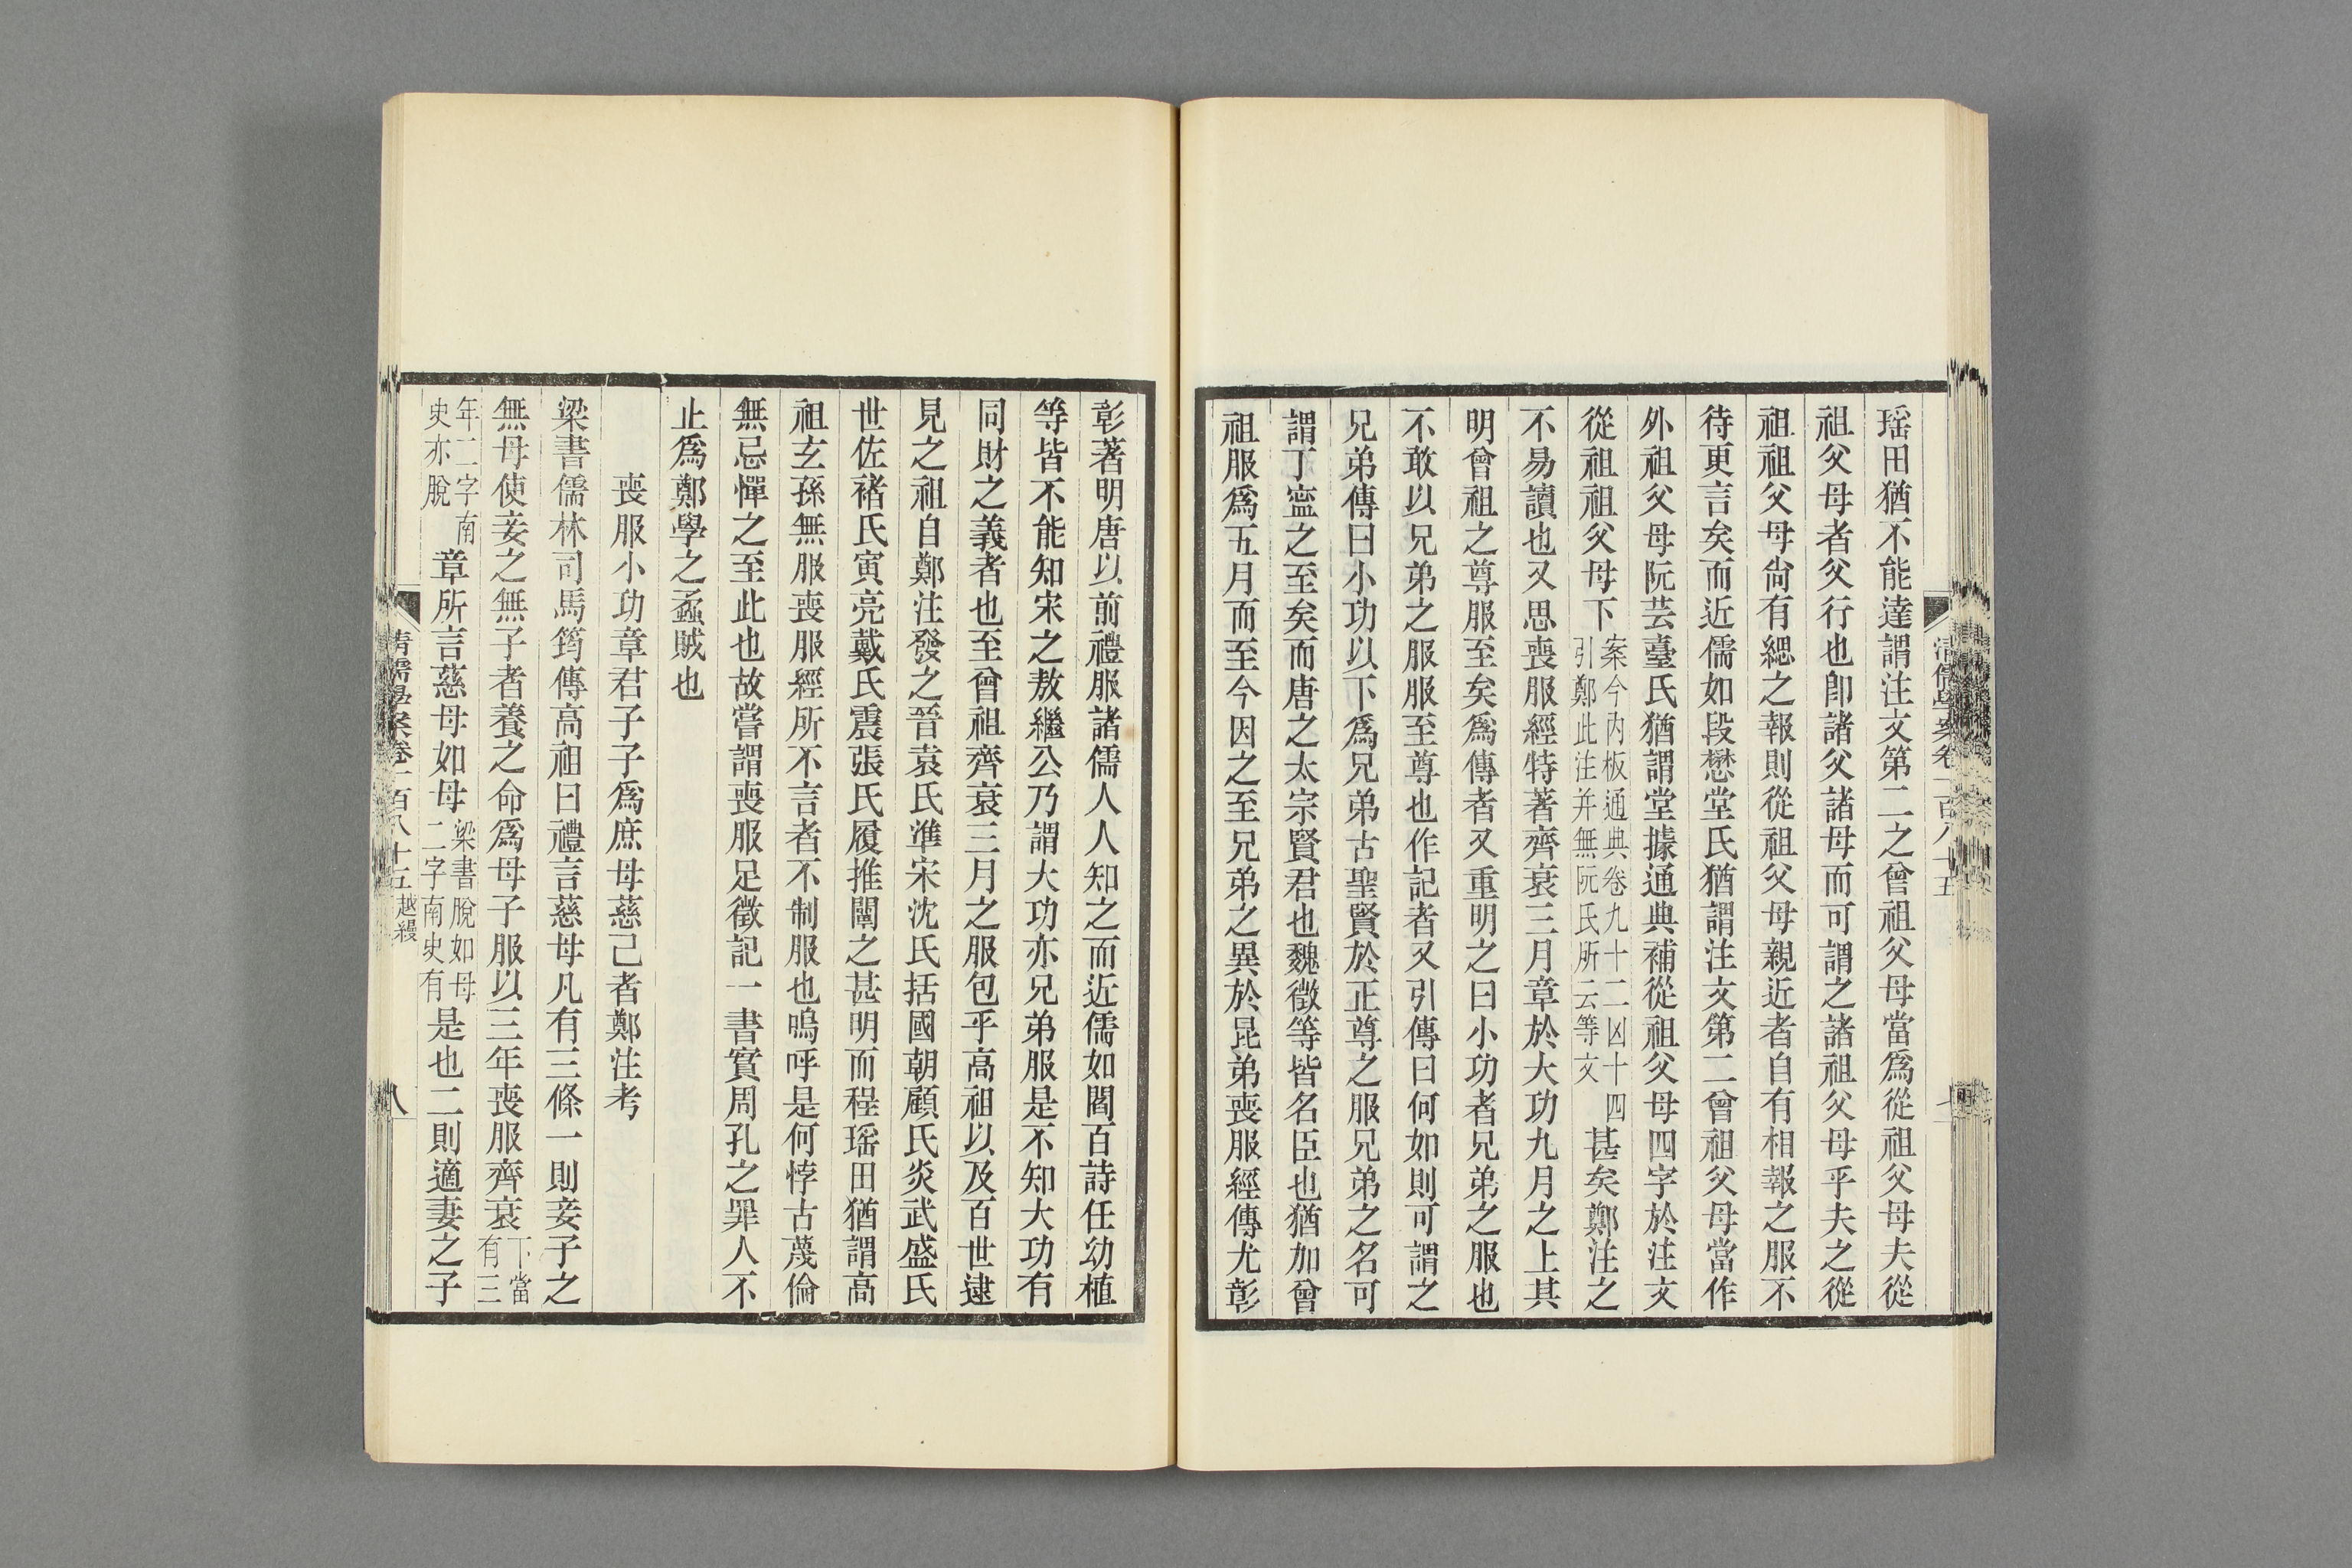 瑶田猶不能達謂注文第二之曾祖父母當爲從祖父母夫從
祖父母者父行也卽諸父諸母而可謂之諸祖父母乎夫之從
祖祖父母尙有緦之報則從祖父母親近者自有相報之服不
待更言矣而近儒如段懋堂氏猶謂注文第二曾祖父母當作
外祖父母阮芸臺氏猶謂堂據通典補從祖父母四字於注文
從祖祖父母下案今內板通典卷九十二凶十四引鄭此注并無阮氏所云等文甚矣鄭注之
不易讀也又思喪服經特著齊衰三月章於大功九月之上其
明曾祖之尊服至矣爲傳者又重明之曰小功者兄弟之服也
不敢以兄弟之服服至尊也作記者又引傳曰何如則可謂之
兄弟傳曰小功以下爲兄弟古聖賢於正尊之服兄弟之名可
謂丁寍之至矣而唐之太宗賢君也魏徵等皆名臣也猶加曾
祖服爲五月而至今因之至兄弟之異於昆弟喪服經傳尤彰
清儒學案卷一百八十五
彰著明唐以前禮服諸儒人人知之而近儒如閻百詩任幼植
等皆不能知宋之敖繼公乃謂大功亦兄弟服是不知大功有
同財之義者也至曾祖齊衰三月之服包乎高祖以及百世逮
見之祖自鄭注發之晉袁氏準宋沈氏括國朝顧氏炎武盛氏
世佐褚氏寅亮戴氏震張氏履推闡之甚明而程瑶田猶謂高
祖玄孫無服喪服經所不言者不制服也嗚呼是何悖古蔑倫
無忌憚之至此也故嘗謂喪服足徵記一書實周孔之罪人不
止爲鄭學之蟊賊也
喪服小功章君子子爲庶母慈己者鄭注考
梁書儒林司馬筠傳高祖曰禮言慈母凡有三條一則妾子之
無母使妾之無子者養之命爲母子服以三年喪服齊衰下當有三
年二字南史亦脫章所言慈母如母梁書脫如母二字南史有是也二則適妻之子
清儒學案卷一百八十五 越縵
八